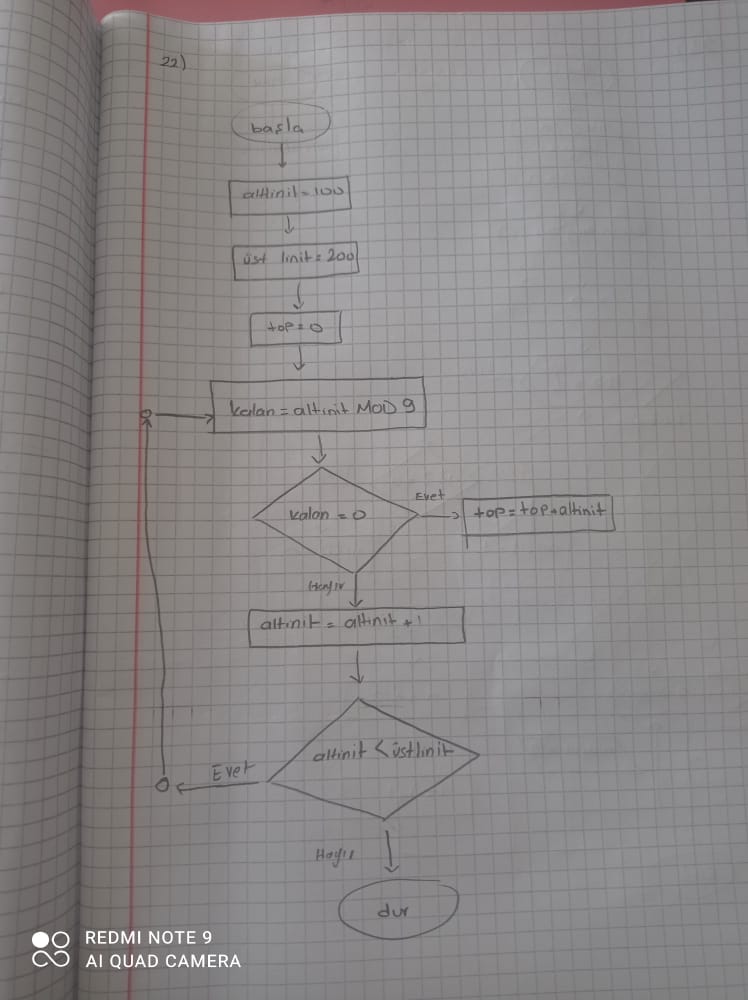 22)
başla
altlinit=100
üst linit=200
top=0
kalan=altınıt MOD 9
kalan=0
Evet
top=top+altınıt
Hayır
altınıt = altınıt +1
altınıt < üstlınıt
Evet
Hayır
dur
REDMI NOTE 9
AI QUAD CAMERA